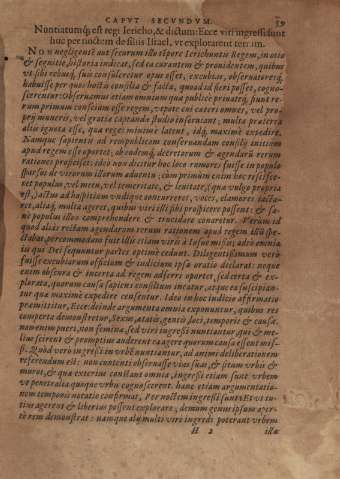 CAPVT SECVNDVM. 59
Nuntiatumq́; est regi Iericho, & dictum: Ecce viri ingressi sunt
huc per noctem de filiis Israel, vt explorarent terram.
NON negligenté aut securum illo tempore Ierichuntis Regem, in otio
& segnitie, historia indicat, sed ea curantem & prouidentem, quibus
vt sibi rebusq́; suis consuleretur opus esset, excubias, obseruatoresq́;
habuisse per quos hostis consilia & facta, quoad id fieri posset, cogno-
sceret: Obseruamus etiam omnium quæ publicè priuatìq́; fiunt re-
rum primum conscium esse regem, vtpote cui cæteri omnes, vel pro-
prij muneris, vel gratiæ captandæ studio inseruiant; multa præterea
aliis ignota esse, quæ regi minimè latent, idq́; maximè expedire.
Namque sapientis ad rempublicam conseruandam consilij initium
apud regem esse oportet, ab eodemq́; decretorum & agendarū rerum
rationes proficisci: ideò non dicitur hoc loco rumores fuisse in populo
sparsos de virorum illorum aduentu;
populos illos comprehendere & trucidare conaretur. Verum id
quod aliàs rectam agendarum rerum rationem apud regem illū spe-
ctabat, percommodum fuit illis etiam viris à Iosue missis; adeò omnia
iis qui Dei sequuntur partes optimè cedunt. Diligentissimum verò
fuisse excubiarum officium & indicium ipsa oratio declarat: neque
enim obscura & incerta ad regem adferri oportet, sed certa & ex-
plorata, quorum causa sapiens consilium ineatur, atque ea suscipian-
tur quæ maximè expedire censentur. Ideo in hoc indicio affirmatio
præmittitur, Ecce: deinde argumenta omnia exponuntur, quibus res
comperta demonstretur, Sexus, ætatis, gentis, loci, temporis & causæ.
non enim pueri, non femina, sed viri ingressi nuntiantur, qui & me-
lius scirent & promptius auderent ea agere quorum causa essent mis-
si. Quòd verò ingressi in vrbē nuntiantur, ad animi deliberationem
referendum est: non contenti obseruasse vias suas, & situm vrbis &
muros, & quæ exterius constant omnia, ingressi etiam sunt vrbem
vt penetralia quæque vrbis cognoscerent. hanc etiam argumentatio-
nem temporis notatio confirmat, Per noctem ingressi sunt: Et vt tu-
tius agerent & liberius possent explorare; demum genus ipsum aper-
tè rem demonstrat: namque alij multi viri ingredi poterant vrbem
H 2 illæ